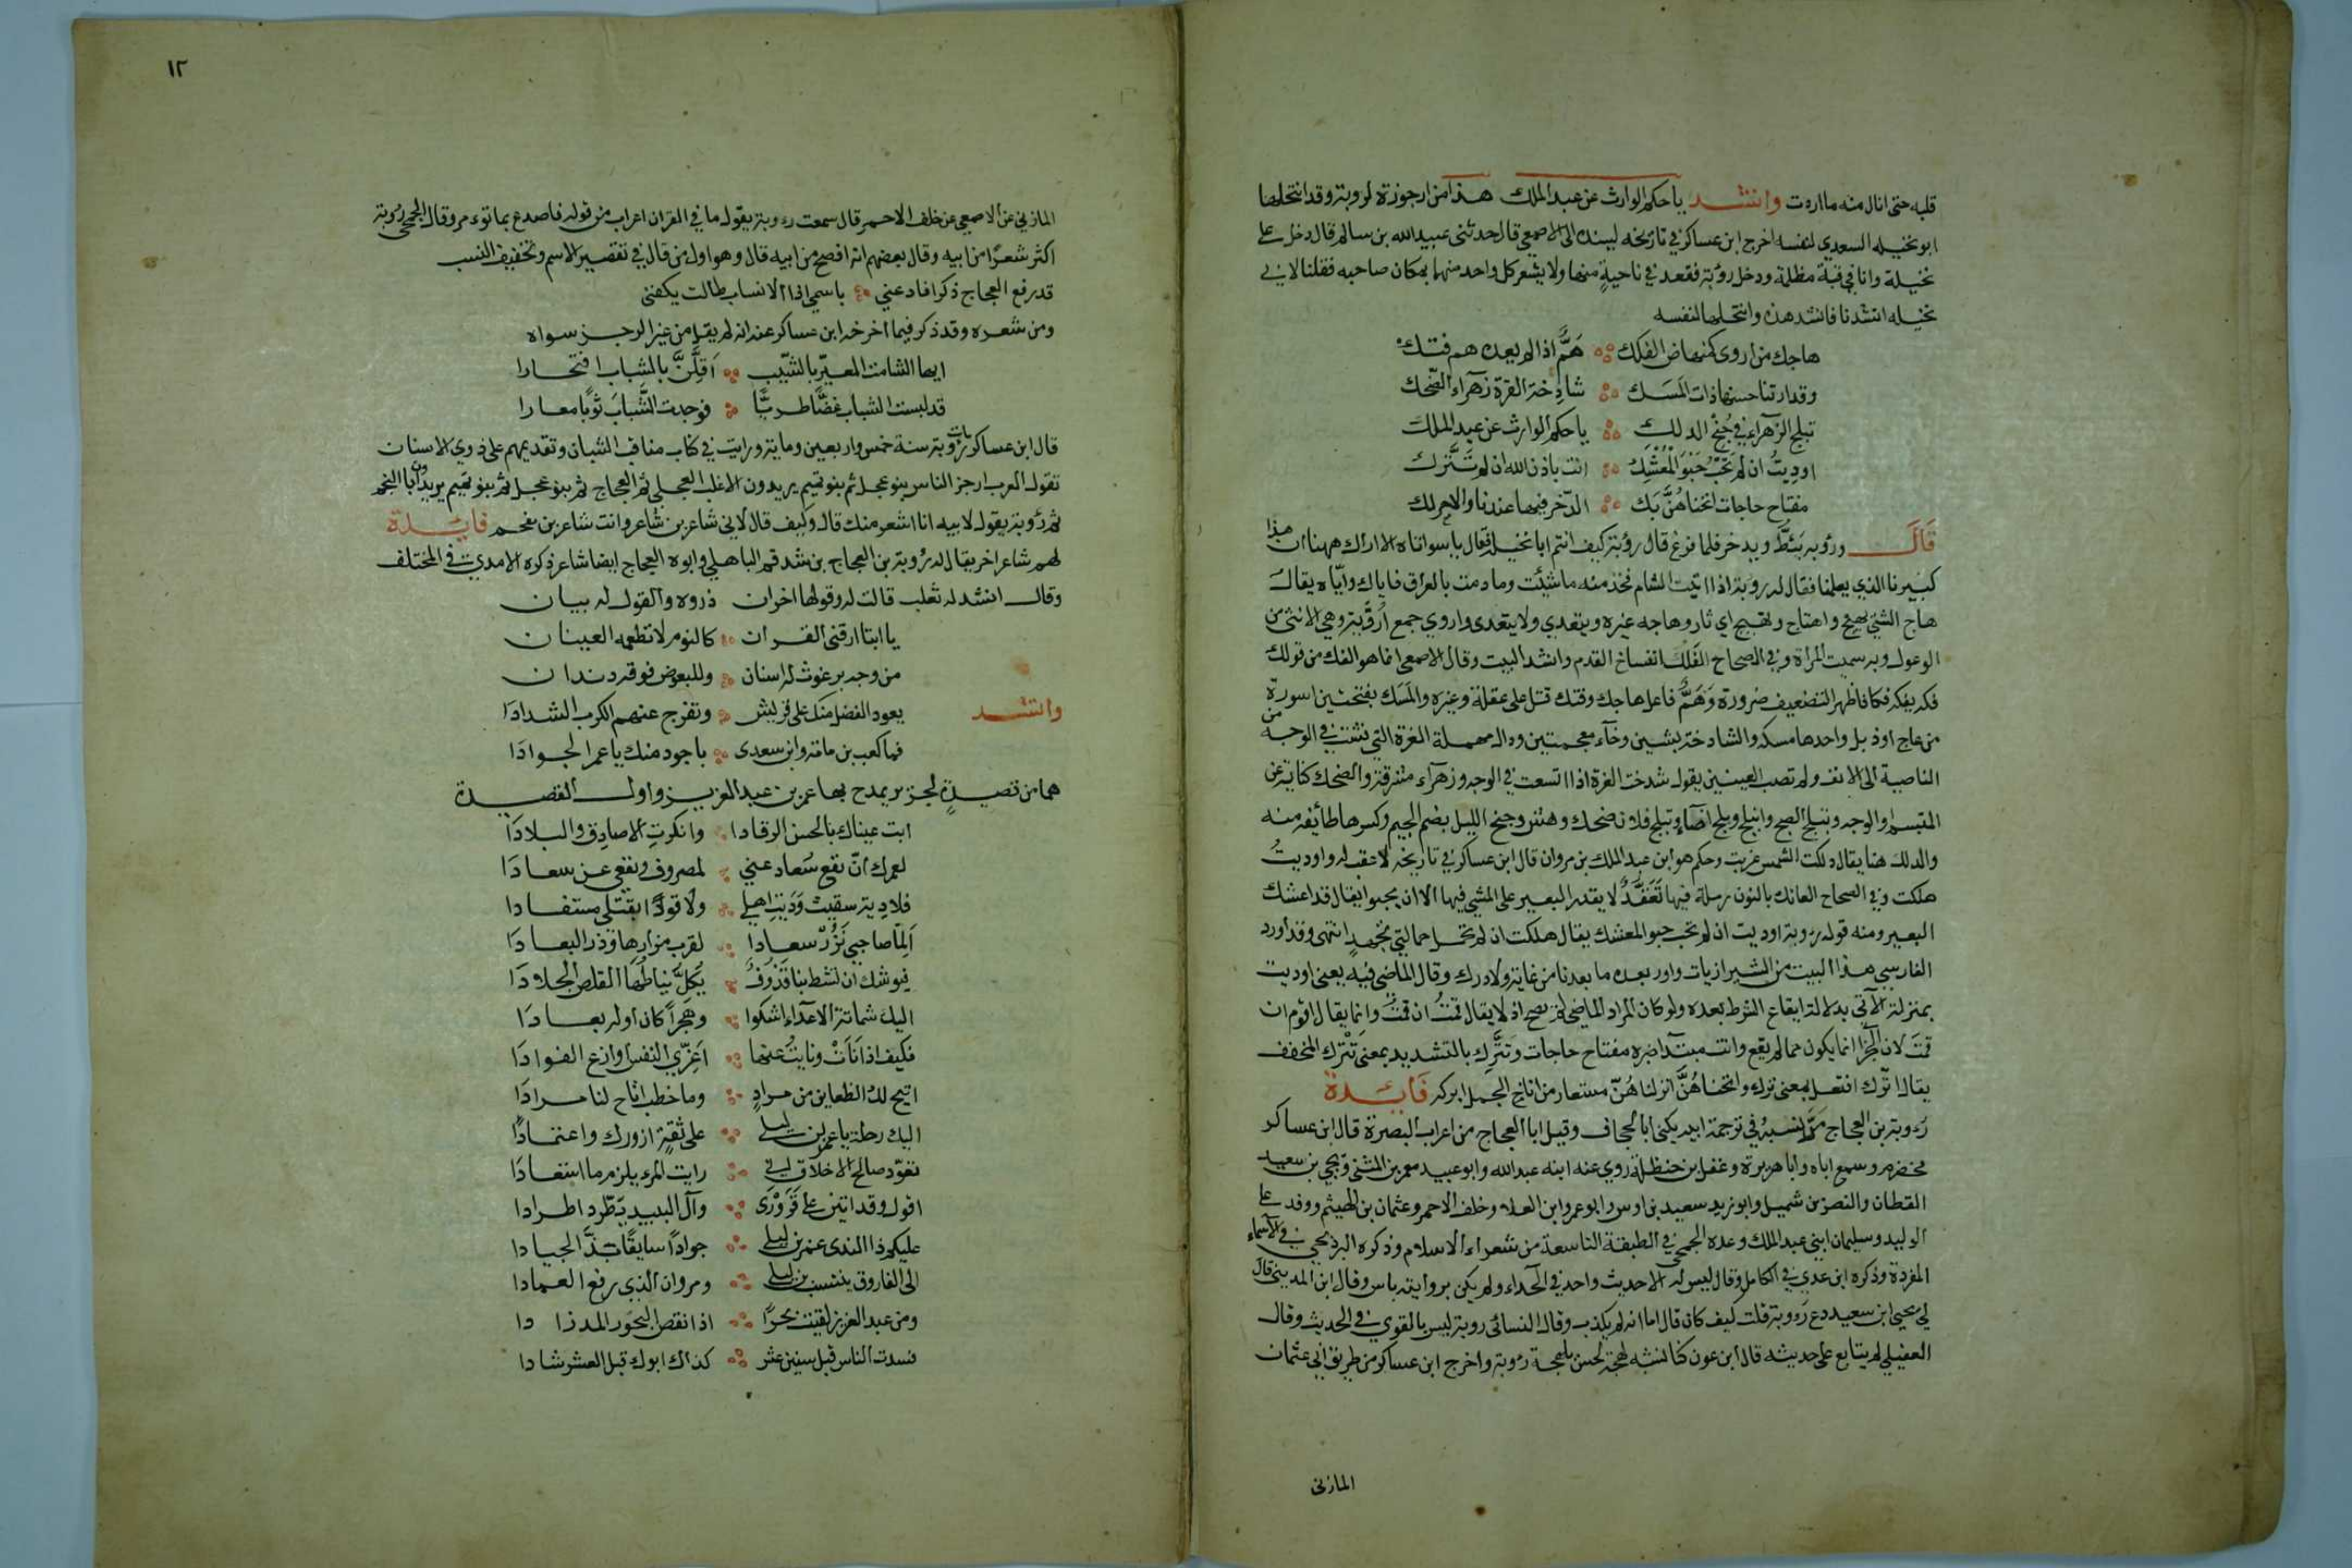 قلبه حتى انال منه ما اردت وانشد يا حكم الوارث عن عبد الملك هذا من ارجوزة لروبة وقد انتحلها
ابو نخيله السعدي لنفسه اخرج ابن عساكر في تاريخه بسنده الى الاصمعي قال حدثنى عبيد الله بن سالم قال دخل على
نخيلة وانا في قبة مظلمة ودخل رؤبة فقعد في ناحية منها ولا يشعر كل واحد منهما بمكان صاحبه فقلنا لابي
نخيله انشدنا فانشد هذه وانتحلها لنفسه
هاجك من اروى كمنهاض الفلك هَمٌّ اذا لم يعده هم فتك
وقد ارتنا حسنها ذات المسك شادخة الغرة زهراء الضحك
تبلج الزهراء في جُنْح الدلك يا حكم الوارث عن عبد الملك
اوديتُ ان لم تحب حَبْوَ المُعْتَنِك انت باذن الله ان لم تتّرك
مفتاح حاجات انخناهُنَّ بك الذخر فيها عندنا والاجر لك
قال ورؤبه يئط ويدخر فلما فرغ قال رؤبة كيف انتم ابا نخيله فقال يا سواتاه الا اراك ههنا ان هذا
كبيرنا الذي يعلمنا فقال له روبة اذا اتيت الشام فخذ منه ما شئت وما دمت بالعراق فاياك واياه يقال
هاج الشيء يهيج واهتاج وتهيج اي ثار وهاجه غيره ويتعدي ولا يتعدى واروي جمع اُرْوِيَّة وهي الانثى من
الوعول وبه سميت المراة وفي الصحاح الفَلَك انفساخ القدم وانشد البيت وقال الاصمعي انما هو الفك من قولك
فكه يفكه فكا فاظهر التضعيف ضرورة وَهَمٌّ فاعل هاجك وفتك قتل على غفلة وغره والمسك بفتحتين اسورة
من عاج او ذبل واحدها مسكه والشادخة بشين وخاء معجمتين ودال مهملة الغرة التي نشت في الوجه من
الناصية الى الانف ولم تصب العينين يقول شدخت الغرة اذا اتسعت في الوجه وزهراء مشرقة والضحك كناية عن
المتبسم والوجه وتبلج الصبح وانبلج وبلج اضاء وتبلج فلان ضحك وهش وجنح الليل بضم الجيم وكسرها طائفة منه
والدلك هنا يقال دلكت الشمس غربت وحكم هو ابن عبد الملك بن مروان قال ابن عساكر في تاريخه لا عقب له واوديتُ
هلكت وفي الصحاح العانك بالنون رملة فيها تَعَقُّدٌ لا يقدر البعير على المشي فيها الا ان يحبوا يقال قد اعتنك
البعير ومنه قول رؤبة اوديت ان لم تحب حبو المعتنك يقال هلكت ان لم تحمل حمالتي بجهد انتهى وقد اورد
الفارسي هذا البيت من الشيرازيات واورد بعده ما بعدنا من غاية ولا درك وقال الماضي فيه يعني اوديت
بمنزلة الآتى بدلالة ايقاع الشرط بعده ولو كان المراد الماضي لم يصح اذ لا يقال قمتُ ان قمتَ وانما يقال اقوم ان
قمت لان الجزا انما يكون مما لم يقع وانت مبتدا خبره مفتاح حاجات وتتّرك بالتشديد بمعنى تَتْرك المخفف
يقال اتّرك افتعل بمعنى ترك وانخناهُنَّ انزلناهُنّ مستعار من اناخ الجمل ابركه فايدة
رءوبة بن العجاج مرّ نسبه في ترجمة ابيه يكنى ابا الجحاف وقيل ابا العجاج من اعراب البصرة قال ابن عساكر
مخضرم وسمع اباه وابا هريرة وغفل بن حنظلة روي عنه ابنه عبد الله وابو عبيد معمر بن المثنى ويحيي بن سعيد
القطان والنضر بن شميل وابو زيد سعيد بن اوس وابو عمرو ابن العلا وخلف الاحمر وعثمان بن الهيثم ووفد على
الوليد وسليمان ابني عبد الملك وعده الجمحي في الطبقة الناسعة من شعراء الاسلام وذكره البرديجي في الاسماء
المفردة وذكره ابن عدي في الكامل وقال ليس له الا حديث واحد في الحداء ولم يكن بروايته باس وقال ابن المديني قال
لي يحيي ابن سعيد دع رءوبة قلت كيف كان قال اما انه لم يكذب وقال النسائى روبة ليس بالقوي في الحديث وقال
العقيلي لم يتابع على حديثه قال ابن عون كنا نشبه لهجة الحسن بلهجة رؤبة واخرج ابن عساكر من طريق ابي عثمان
المازنى
١٢
المازني عن الاصمعي عن خلف الاحمر قال سمعت رءوبة يقول ما في القران اعراب من قوله فاصدع بما تؤمر وقال الجمحي رؤبة
اكثر شعرًا من ابيه وقال بعضهم انه افصح من ابيه قال وهو اول من قال في تقصير الاسم وتخفيف النسب
قد رفع العجاج ذكرا فادعني باسمي اذا الانساب طالت يكفني
ومن شعره وقد ذكر فيما اخرجه ابن عساكر عنه انه لم يقل من غير الرجز سواه
ايها الشامت المعيّر بالشيب اَقِلَّنَّ بالشباب افتخارا
قد لبست الشباب غضًّا طريًّا فوجدت الشّبابَ ثوبًا معارا
قال ابن عساكر مات رؤبة سنة خمس واربعين وماية ورايت في كتاب مناقب الشبان وتقديمهم على ذوي الاسنان
تقول العرب ارجز الناس بنو عجل ثم بنو تميم يريدون الاغلب العجلي ثم العجاج ثم بنو عجل ثم بنو تميم يريدون ابا النجم
ثم رؤبة يقول لابيه انا اشعر منك قال وكيف قال لاني شاعر بن شاعر وانت شاعر بن مفحم فايدة
لهم شاعر اخر يقال له رؤبة بن العجاج بن شدقم الباهلي وابوه العجاج ايضا شاعر ذكره الامدي في المختلف
وقال انشد له ثعلب قالت له وقولها اخران ذروه والقول له بيان
يا ابتا ارقنى القران كالنوم لا تطعمه العينان
من وجه برغوث له اسنان وللبعوض فوقه دندان
وانشد يعود الفضل منك على قريش وتفرج عنهم الكرب الشدادَا
فما كعب بن مامة وابن سعدى باجود منك يا عمر الجوادَا
هما من قصيدةٍ لجرير يمدح بها عمر بن عبد العزيز واول القصيدة
ابت عيناك بالحسن الرقادا وانكرتِ الاصادق والبلادَا
لعمرك انّ نفع سُعاد عني لمصروف ونفعي عن سعادَا
فلا دية سقيت وَدَيت اهلي ولا قودًا بقتلي مستفادا
اَلِمّا صاحبي نَزُرْ سعادا لقرب مزارها وذر البعادَا
فيوشك ان تشط بنا قَذُوفٌ يُكِلُّ نياطُهَا القلص الجلادَا
اليك شماتة الاعداء اشكوا وهجرًا كان اوله بعادَا
فكيف اذا نَاَتْ ونايتُ عنها اَعَزّي النفس او ازع الفوادَا
اتيح لك الظعاين من مرادٍ وما خطب اتاح لنا مرادَا
اليك رحلت يا عمر بن ليلى على ثقةٍ ازورك واعتمادًا
تعوّد صالح الاخلاق اني رايت المرء يلزم ما استعادَا
اقول وقد اتين على قَرَوْرَى وآل البيد يطّرد اطرادا
عليكم ذا الندى عمر بن ليلى جوادًا سابقًا بَذَّ الجيادا
الى الفاروق ينتسب بن ليلى ومروان الذي رفع العمادا
ومن عبد العزيز لقيت بحرًا اذا نقص البحور المد زادا
فسدت الناس قبل سنين عشر كذاك ابوك قبل العشر شادا